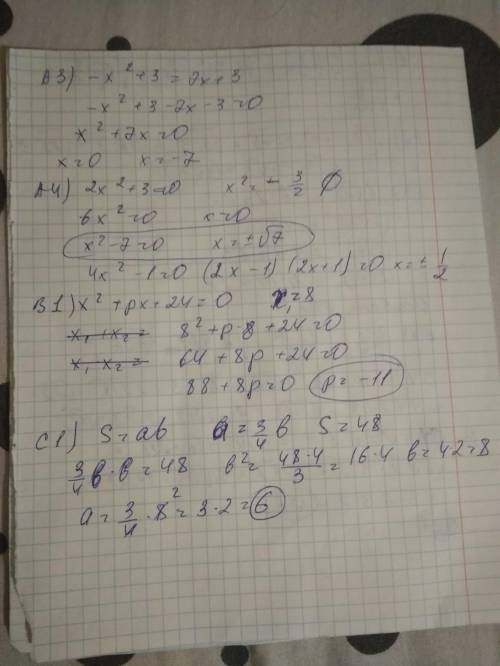 А3) -x² + 3 = 7x + 3
-x² + 3 - 7x - 3 = 0
x² + 7x = 0
x = 0 x = -7
А4) 2x² + 3 = 0 x² = - 3/2 ∅
6x² = 0 x = 0
x² - 7 = 0 x = ±√7
4x² - 1 = 0 (2x - 1)(2x + 1) = 0 x = ± 1/2
В1) x² + px + 24 = 0 x₁ = 8
x₁ + x₂ = 8² + p·8 + 24 = 0
x₁ x₂ = 64 + 8p + 24 = 0
88 + 8p = 0 p = -11
С1) S = ab a = 3/4 b S = 48
3/4 b · b = 48 b² = 48·4/3 = 16·4 b = 4·2 = 8
a = 3/4 · 8² = 3·2 = 6